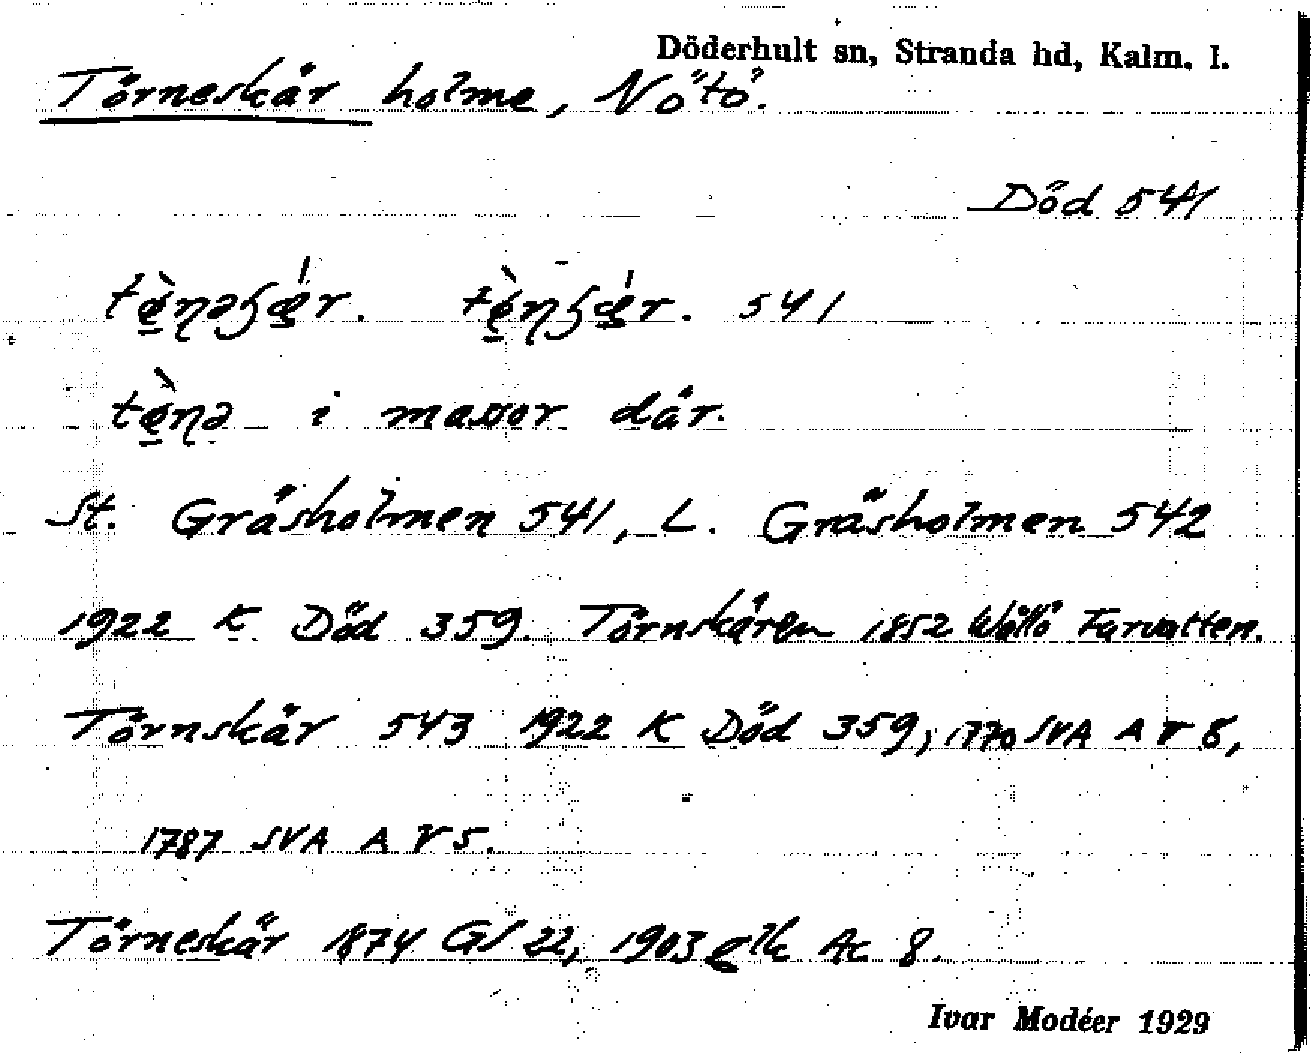 Döderhult sn, Stranda hd, Kalm. l.
Törneskär holme, Nötö.
Död 541
541
i massor där.
St. Gräsholmen 541, L. Gräsholmen 542
1922 K Död 359. Törnskären 1852 Wållö Farvatten.
Törnskär 543 1922 K Död 359, 1770 SVA A V 8,
1787 SVA A V 5.
Törneskär 1874 GS 22, 1903 elk Ac 8.
Ivar Modéer 1929